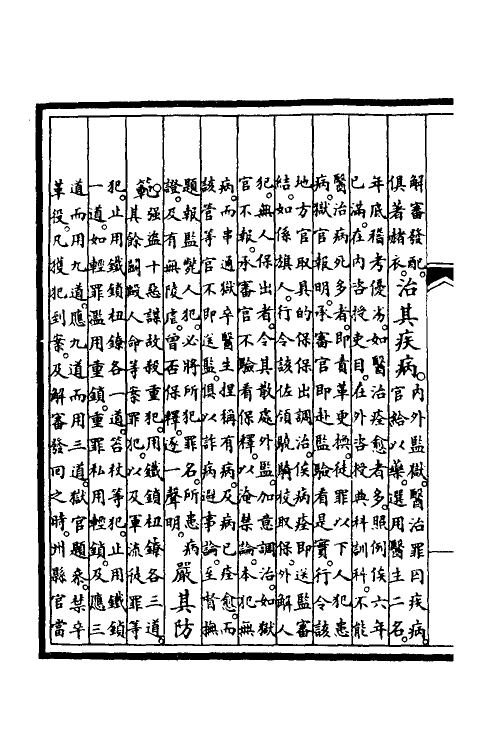 解審發配。
俱著赭衣。
治其疾病。
內外監獄。醫治罪囚疾病。
官給以藥。選用醫生二名。
年底稽考優劣。如醫治痊愈者多。照例俟六年
已滿。在內咨授吏目。在外咨授典科訓科。不能
醫治。病死多者。即責革更換。徒罪以下人犯患
病。獄官報明。承審官即赴監驗看是實。行令該
地方官取具的保。保出調治。俟病痊即送監審
結。如係旗人。行令該佐領驍騎校取保。外解人
犯。無人保出者。令其散處外監。加意調治。如獄
官不報。承審官不驗看保釋。以淹禁論。本犯無
病。而串通獄卒醫生。捏稱有病。及病已痊愈。而
該管等官不即送監。俱以詐病避事論。至督撫
題報監斃人犯。必將所犯罪名。所患病
證。及有無陵虐。曾否保釋。逐一聲明。
嚴其防
範。
強盜十惡謀故殺重犯。用鐵鎖杻鐐各三道。
其餘鬬毆人命等案罪犯。以及軍流徒罪等
犯。止用鐵鎖杻鐐各一道。笞杖等犯。止用鐵鎖
一道。如輕罪濫用重鎖。重罪私用輕鎖。及應三
道而用九道。應九道而用三道。獄官題參。禁卒
革役。凡獲犯到案。及解審發回之時。州縣官當